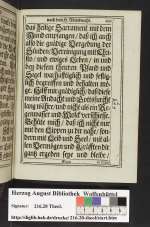 nach dem H. Abendmahl.
das heilige Sacrament mit dem
Mund empfangen/ daß ich auch
also die gnädige Vergebung der
Sünden/ Vereinigung mit Christo/
und ewiges Leben/ in und
bey diesem theuren Pfand und
Siegel warhafftiglich und seliglich
begreiffen und behalten möge.
Gib mir gnädiglich/ daß
meine Andacht und Gottesfurcht
lang währe/ und nicht als ein
und Wolcke verschwinde.
Behüte mich/ daß ich nicht nur
mit den Lippen zu dir nahe/ sondern
mit Leib und Seel/ mit allen
Vermögen und Kräfften dir
gantz ergeben seye und bleibe/
Herzog August Bibliothek Wolfenbüttel
Signatur: 216.20 Theol.
http://diglib.hab.de/drucke/216-20-theol/start.htm